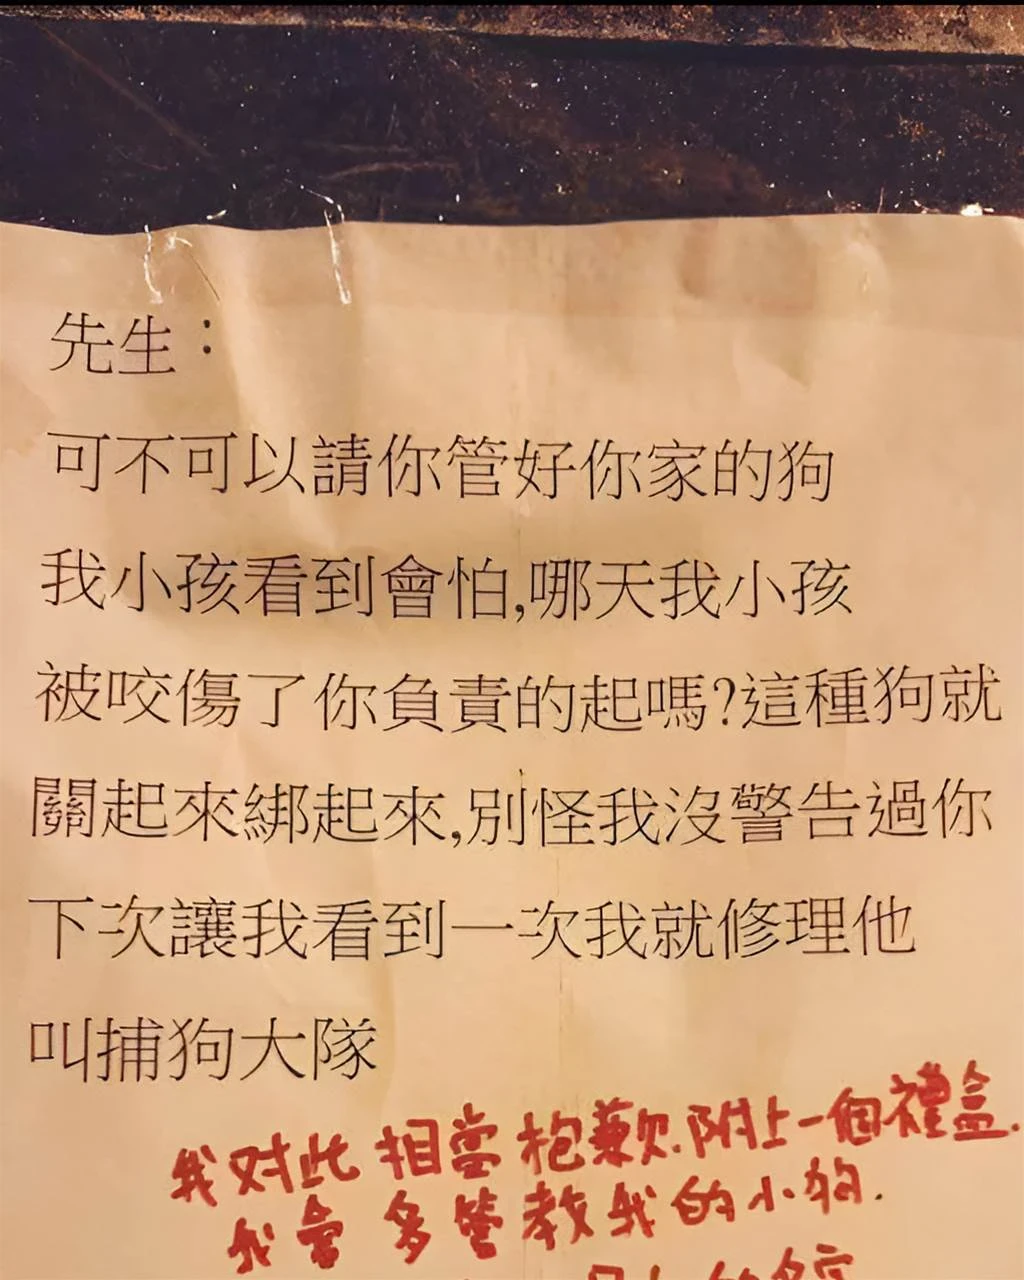 先生：
可不可以請你管好你家的狗
我小孩看到會怕,哪天我小孩
被咬傷了你負責的起嗎?這種狗就
關起來綁起來,別怪我沒警告過你
下次讓我看到一次我就修理他
叫捕狗大隊
我对此相當抱歉.附上一個禮盒.
我會多管教我的小狗.